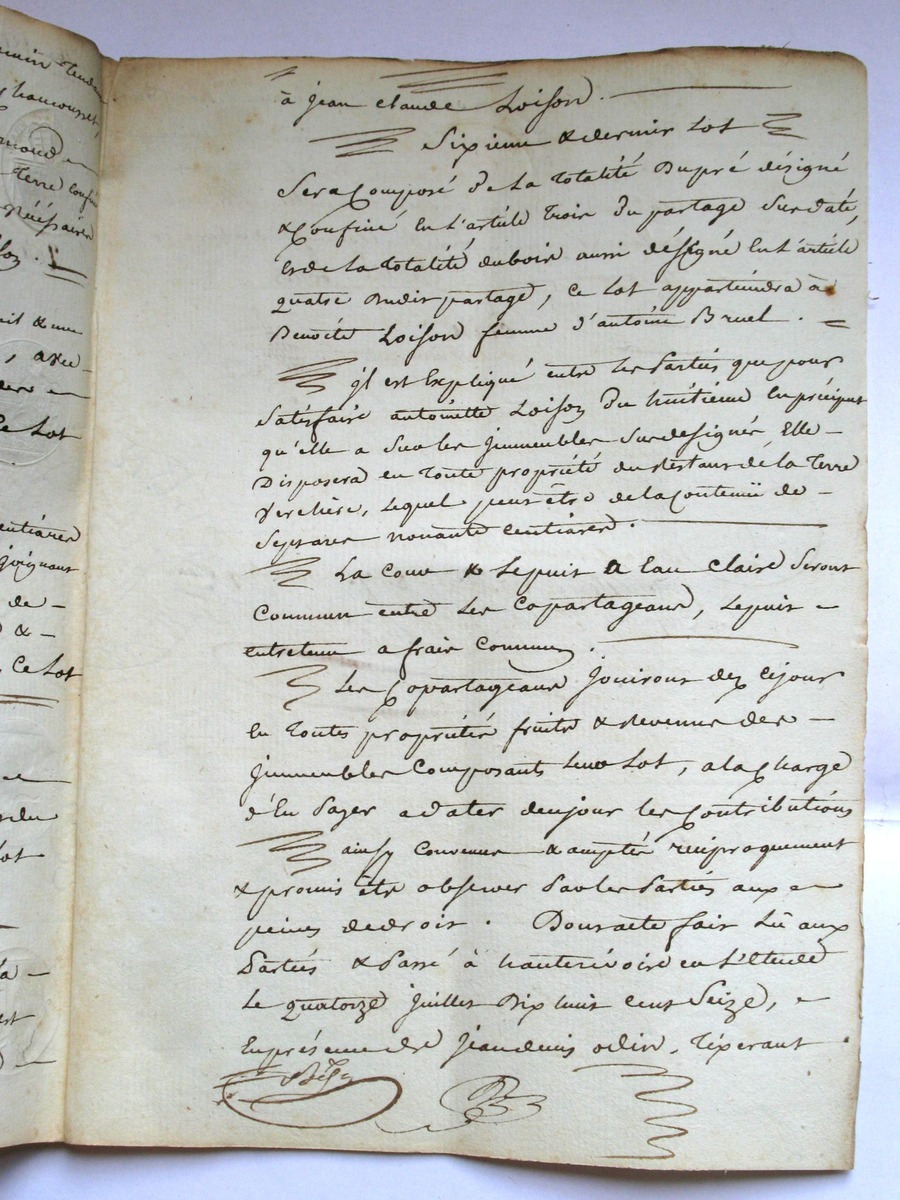 à jean claude Loison.
Sixieme & dernier Lot
Sera Composé de La Totalité Du pré désigné
& Confiné En L'article Trois Du partage Susdaté,
et de La Totalité du bois aussi désigné En L'article
quatre Dudit partage, Ce Lot appartiendra à
Benoîte Loison femme d'antoine Bruel.
jl est Expliqué entre les Parties que pour
Satisfaire antoinette Loison Du huitieme En préciput
qu'elle a Sur les jmmeubles Susdesignés, Elle
Disposera en Toute propriété du Restant de La Terre
Verchère, Lequel peut être de la Contenüe de
Sept ares nonante Centiares.
La Cour & Le puit a Eau Claire Seront
Commun entre Les Copartageans, Le puit
entretenu a frais Communs.
Les Copartageans jouiront dez Cejour
En Toutes propriétés fruits & Revenus des
jmmeubles Composants Leur Lot, a la Charge
d'En Payer a dater de cejour les Contributions
ainsy Convenu & accepté réciproquement
& promis être observer Par les Parties aux
peines de droit. Dont acte fait Lû aux
Parties & Passé à hauterivoire en L'Etude
Le quatorze juillet Dix huit Cent Seize,
En présence de jean denis odin, Tixerant
min Tenda
mond
Terre Confin
Nécessaires
& une
Ce Lot
centiares
joignant
de
&
Ce Lot